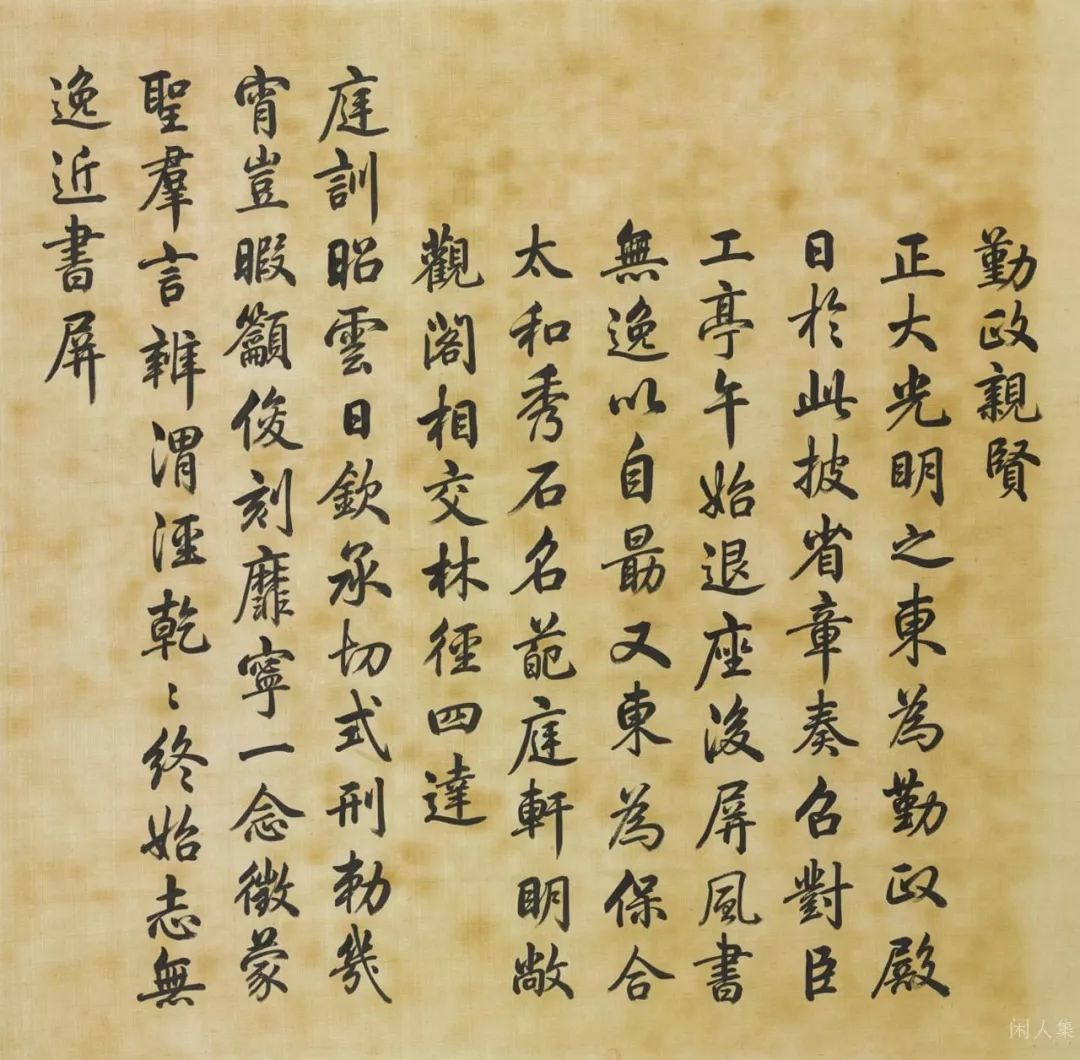 勤政親賢
正大光明之東為勤政殿
日於此披省章奏召對臣
工亭午始退座後屏風書
無逸以自勗又東為保合
太和秀石名葩庭軒明敞
觀閣相交林徑四達
庭訓昭雲日欽承切式刑勑幾
宵豈暇籲俊刻靡寧一念徵蒙
聖羣言雜渭涇乾〻終始志無
逸近書屏
闲人集